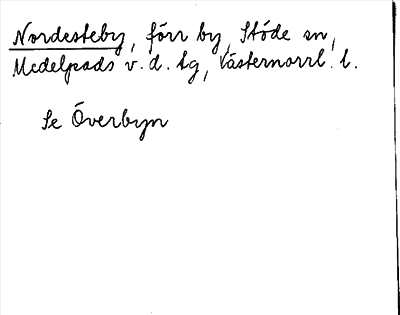 Nordesteby, förr by, Stöde sn,
Medelpads v. d. tg, Västernorrl. l.
Se Överbyn